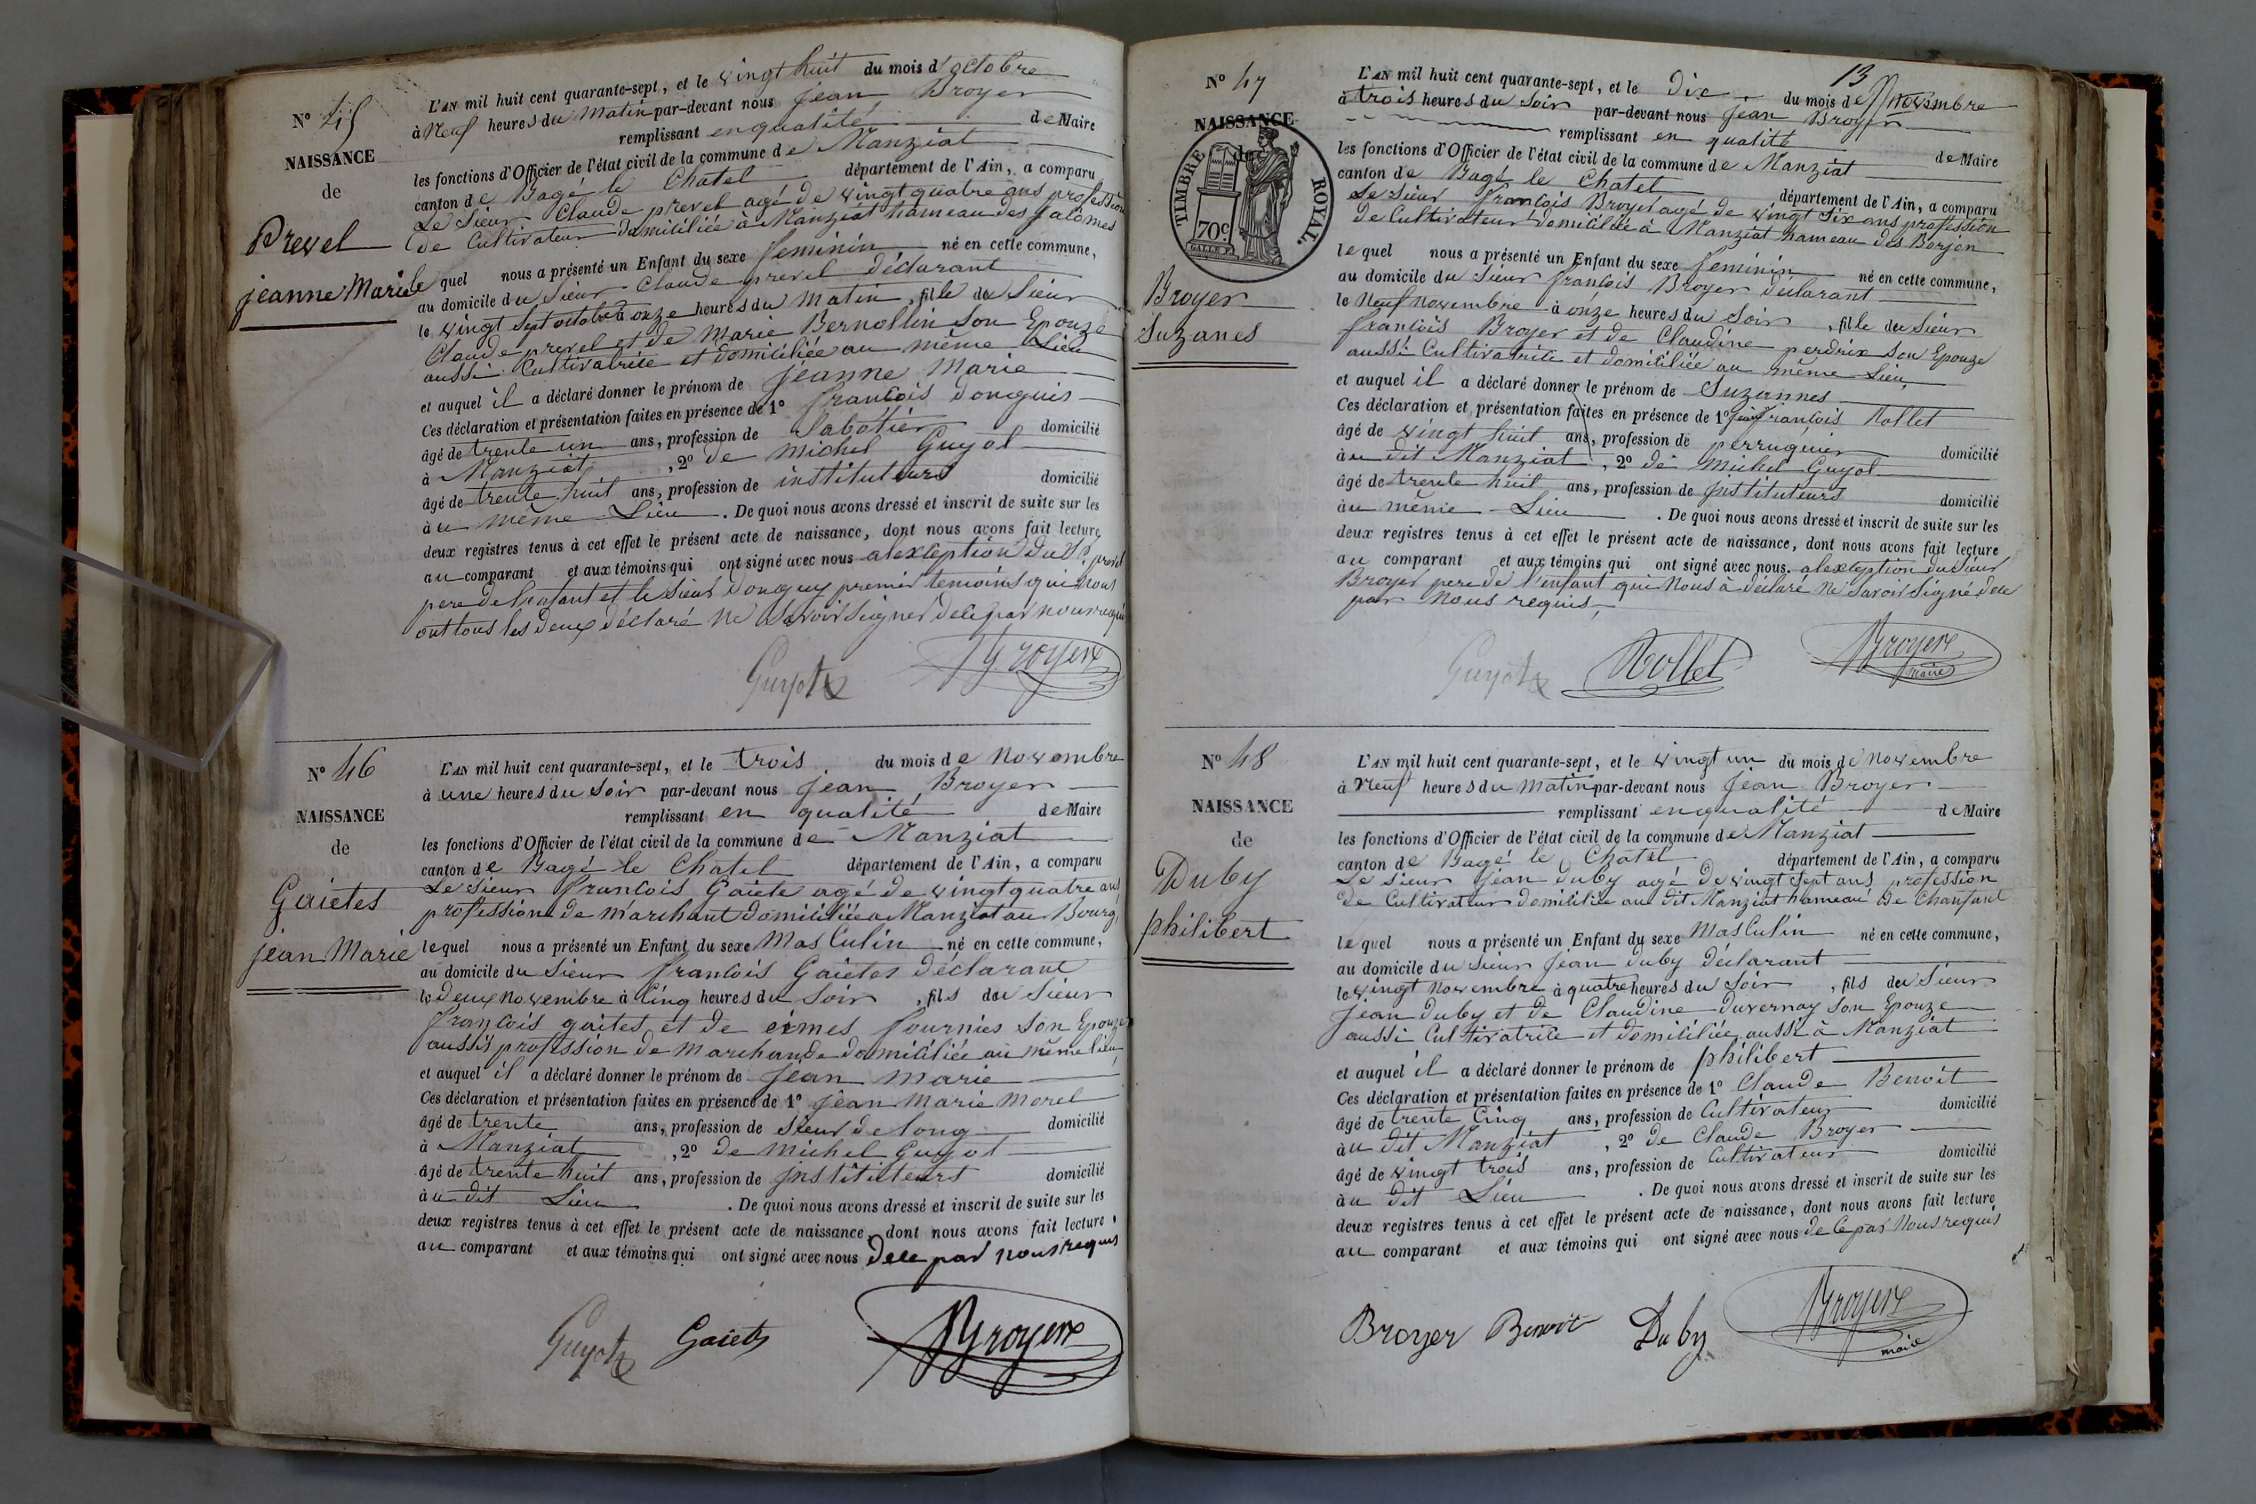 N° 45
NAISSANCE
de
Prevel
jeanne Marie
L'AN mil huit cent quarante-sept, et le vingt huit du mois d'octobre
à Neuf heures du Matin par-devant nous jean Broyer
remplissant en qualité de Maire
les fonctions d'Officier de l'état civil de la commune de Manziat
canton de Bagé le Chatel département de l'Ain, a comparu
Le Sieur Claude prevel agé de vingt quatre ans profession
de Cultivateur domiciliée à Manziat hameau des jalomes
le quel nous a présenté un Enfant du sexe feminin né en cette commune,
au domicile du Sieur Claude prevel déclarant
le vingt Sept octobre à onze heures du matin, fille du Sieur
Claude prevel et de Marie Bernollin son Epouze
aussi Cultivatrice et domiciliée au même Lieu
et auquel il a déclaré donner le prénom de jeanne Marie
Ces déclaration et présentation faites en présence de 1° francois Donguis
âgé de trente un ans, profession de Sabotier domicilié
à Manziat, 2° de michel Guyot
âgé de trente huit ans, profession de instituteurs domicilié
à u même Lieu. De quoi nous avons dressé et inscrit de suite sur les
deux registres tenus à cet effet le présent acte de naissance, dont nous avons fait lecture
au comparant et aux témoins qui ont signé avec nous alexception du Sr prevel
pere de lenfant et le Sieur Donguy premier temoins qui nous
ont tous les deux déclaré ne Savoir Signer dece par nous requis
Guyot Broyer
N° 46
NAISSANCE
de
Gaietes
jean Marie
L'AN mil huit cent quarante-sept, et le trois du mois de Novembre
à une heures du Soir par-devant nous jean Broyer
remplissant en qualité de Maire
les fonctions d'Officier de l'état civil de la commune de Manziat
canton de Bagé le Chatel département de l'Ain, a comparu
Le Sieur francois Gaiete agé de vingt quatre ans
profession de marchant domiciliée a Manziat au Bourg
le quel nous a présenté un Enfant du sexe Masculin né en cette commune,
au domicile du Sieur francois Gaietes déclarant
le deux novembre à Cinq heures du Soir, fils du Sieur
francois gaites et de eimes fournies son Epouze
aussis profession de marchande domiciliée au même lieu
et auquel il a déclaré donner le prénom de jean marie
Ces déclaration et présentation faites en présence de 1° jean Marie Morel
âgé de trente ans, profession de Sieur de long domicilié
à Manziat, 2° de michel Guyot
âgé de trente huit ans, profession de instituteurs domicilié
à u dit Lieu. De quoi nous avons dressé et inscrit de suite sur les
deux registres tenus à cet effet le présent acte de naissance, dont nous avons fait lecture
au comparant et aux témoins qui ont signé avec nous dece par nous requis
Guyot Gaiets Broyer
13
N° 47
NAISSANCE
de
TIMBRE ROYAL.
70c
Broyer
Suzanes
L'AN mil huit cent quarante-sept, et le Dix du mois de Novembre
à trois heures du Soir par-devant nous jean Broyer
remplissant en qualité de Maire
les fonctions d'Officier de l'état civil de la commune de Manziat
canton de Bagé le Chatel département de l'Ain, a comparu
Le Sieur francois Broyer agé de vingt Six ans profession
de Cultivateur domiciliée à Manziat hameau des Borjon
le quel nous a présenté un Enfant du sexe feminin né en cette commune,
au domicile du Sieur francois Broyer declarant
le Neuf novembre à onze heures du Soir, fille du Sieur
francois Broyer et de Claudine perdrix son Epouze
aussi Cultivatrice et domiciliée au même Lieu
et auquel il a déclaré donner le prénom de Suzannes
Ces déclaration et présentation faites en présence de 1° jean francois Rollet
âgé de vingt huit ans, profession de perruquier domicilié
à u dit Manziat, 2° de michel Guyot
âgé de trente huit ans, profession de instituteurs domicilié
à u même Lieu. De quoi nous avons dressé et inscrit de suite sur les
deux registres tenus à cet effet le présent acte de naissance, dont nous avons fait lecture
au comparant et aux témoins qui ont signé avec nous. alexception du Sieur
Broyer pere de l'enfant qui Nous à déclaré ne Savoir Signé dece
par Nous requis
Guyot Rollet Broyer
maire
N° 48
NAISSANCE
de
Duby
philibert
L'AN mil huit cent quarante-sept, et le vingt un du mois de Novembre
à Neuf heures du Matin par-devant nous jean Broyer
remplissant en qualité de Maire
les fonctions d'Officier de l'état civil de la commune de Manziat
canton de Bagé le Chatel département de l'Ain, a comparu
Le Sieur jean Duby agé de vingt Sept ans profession
de Cultivateur domiciliée au dit Manziat hameau de Chanfant
le quel nous a présenté un Enfant du sexe Masculin né en cette commune,
au domicile du Sieur jean Duby déclarant
le vingt Novembre à quatre heures du Soir, fils du Sieur
jean Duby et de Claudine duvernay son Epouze
aussi Cultivatrice et domiciliée aussi à Manziat
et auquel il a déclaré donner le prénom de philibert
Ces déclaration et présentation faites en présence de 1° Claude Benoit
âgé de trente Cinq ans, profession de Cultivateur domicilié
à u dit Manziat, 2° de Claude Broyer
âgé de vingt trois ans, profession de Cultivateur domicilié
à u dit Lieu. De quoi nous avons dressé et inscrit de suite sur les
deux registres tenus à cet effet le présent acte de naissance, dont nous avons fait lecture
au comparant et aux témoins qui ont signé avec nous de ce par Nous requis
Broyer Benoit Duby Broyer
maire